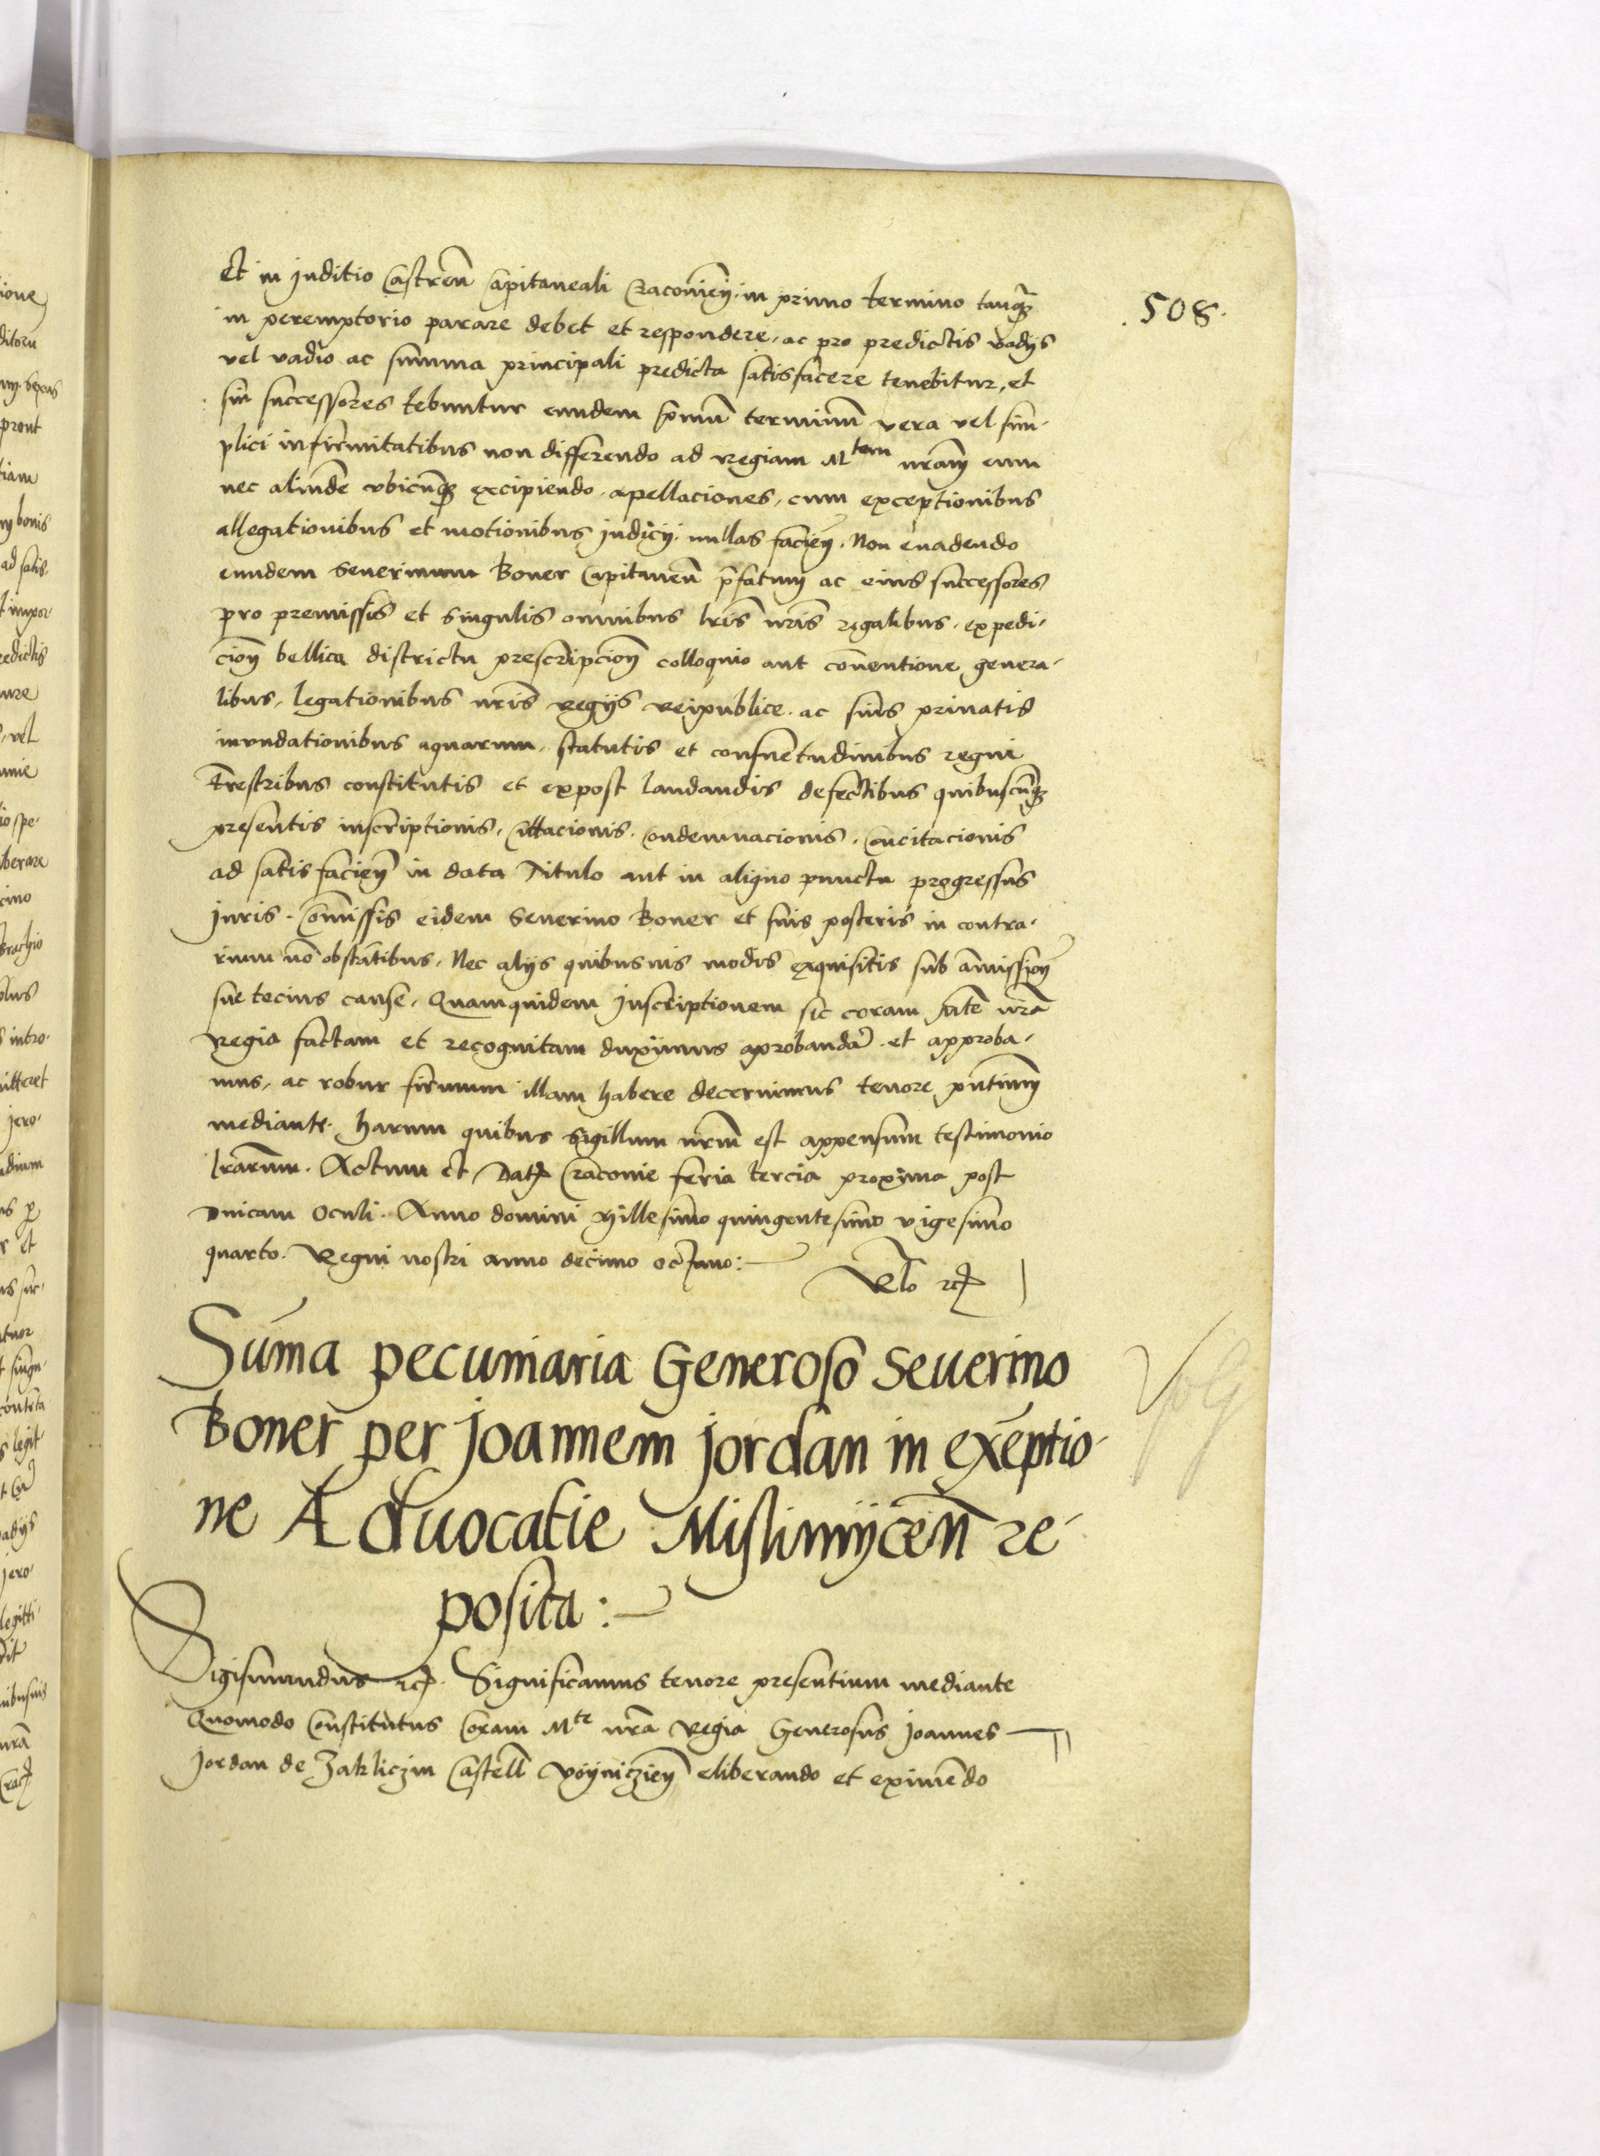 508.
Et in Juditio Castreñ Capitaneali Cracovieñ. in primo termino tanq̃
in peremptorio parare debet et respondere, ac pro predictis vadijs
vel vadio ac summa principali predicta satisfacere tenebitur, et
sui successores tebuntur eundem primũ terminũ vera vel sim-
plici infirmitatibus non differendo ad Regiam Mtem nr̃am eum
nec aliunde vbicunq̃ excipiendo. apellaciones, cum exceptionibus
allegationibus et motionibus Judicij. nullas facieñ. Non evadendo
eundem Severinum Boner Capitaneũ p̃fatum ac eius successores,
pro premissis et singulis omnibus lr̃is nr̃is regalibus. expedi-
cioñ bellica districtu prescripcioñ colloquio aut conventione genera-
libus, legationibus nr̃is Regijs Reipublice. ac suis privatis
invndationibus aquarum, statutis et consuetudinibus regni
Tr̃estribus constitutis et expost laudandis defectibus quibuscunq̃
presentis inscriptionis. Cittacionis. Condemnacionis. Concitacionis
ad satisfacieñ in data Titulo aut in aliquo punctu progressus
Juris. Comissis eidem Severino Boner et suis posteris in contra-
rium nõ obstãtibus. Nec alijs quibusuis modis exquisitis sub amissioñ
sue tecius cause. Quamquidem Inscriptionem sic coram Mte nr̃a
Regia factam et recognitam duximus aprobandã. et approba-
mus, ac robur firmum illam habere decernimus tenore pñtium
mediante. harum quibus Sigillum nr̃m est appensum testimonio
lrarum. Actum et Dat Cracovie feria tercia proxima post
Dnicam Oculi. Anno domini Millesimo quingentesimo vigesimo
quarto. Regni nostri anno decimo octavo:—
Relo etc
Sum̃a pecuniaria Generoso Severino
Boner per Joannem Jordan in exẽptio-
ne Advocatie Mislimijceñ re-
posita:—
Sigismundus etc. Significamus tenore presentium mediante
Quomodo Constitutus Coram Mte nr̃a Regia Generosus Joannes
Jordan de Zakliczin Castell Voyniczieñ eliberando et eximẽdo